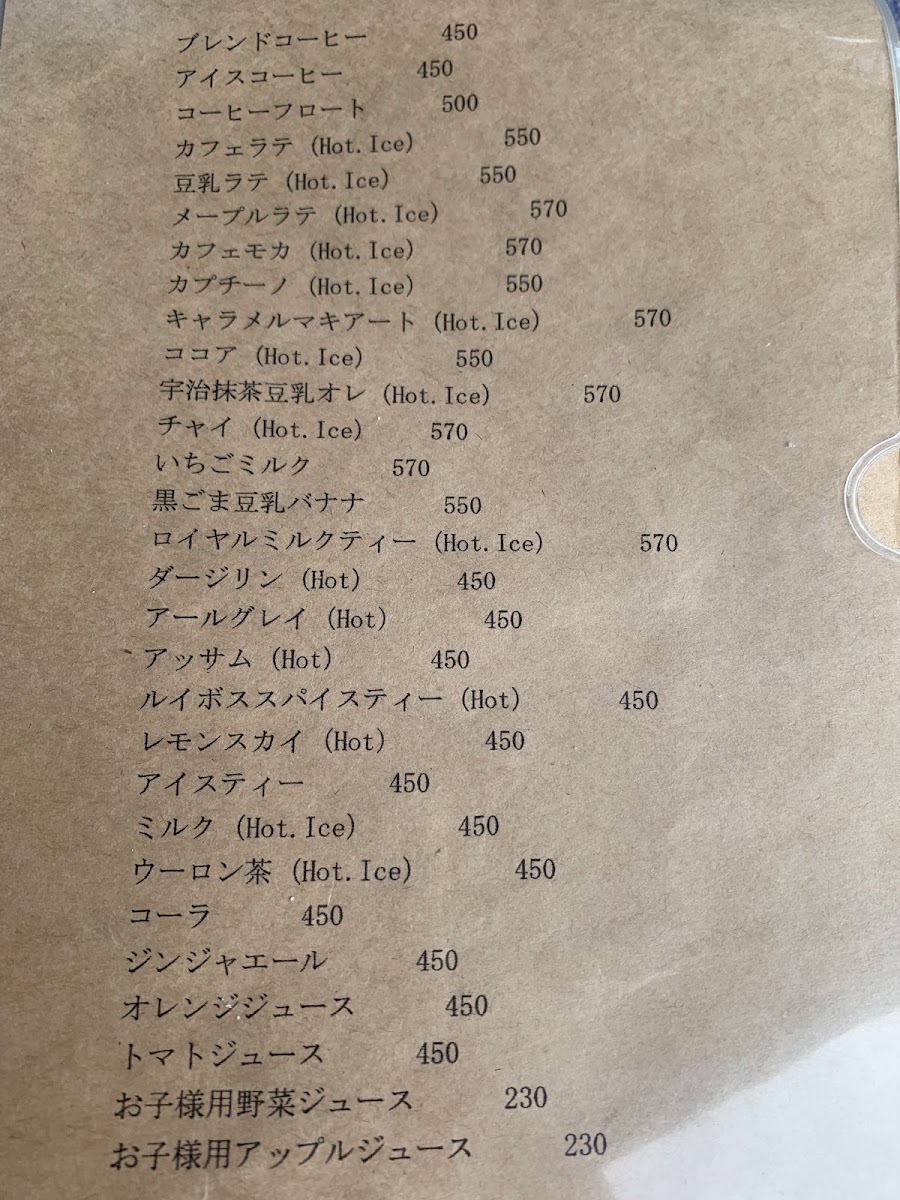 ブレンドコーヒー 450
アイスコーヒー 450
コーヒーフロート 500
カフェラテ (Hot.Ice) 550
豆乳ラテ (Hot.Ice) 550
メープルラテ (Hot.Ice) 570
カフェモカ (Hot.Ice) 570
カプチーノ (Hot.Ice) 550
キャラメルマキアート (Hot.Ice) 570
ココア (Hot.Ice) 550
宇治抹茶豆乳オレ (Hot.Ice) 570
チャイ (Hot.Ice) 570
いちごミルク 570
黒ごま豆乳バナナ 550
ロイヤルミルクティー (Hot.Ice) 570
ダージリン (Hot) 450
アールグレイ (Hot) 450
アッサム (Hot) 450
ルイボススパイスティー (Hot) 450
レモンスカイ (Hot) 450
アイスティー 450
ミルク (Hot.Ice) 450
ウーロン茶 (Hot.Ice) 450
コーラ 450
ジンジャエール 450
オレンジジュース 450
トマトジュース 450
お子様用野菜ジュース 230
お子様用アップルジュース 230